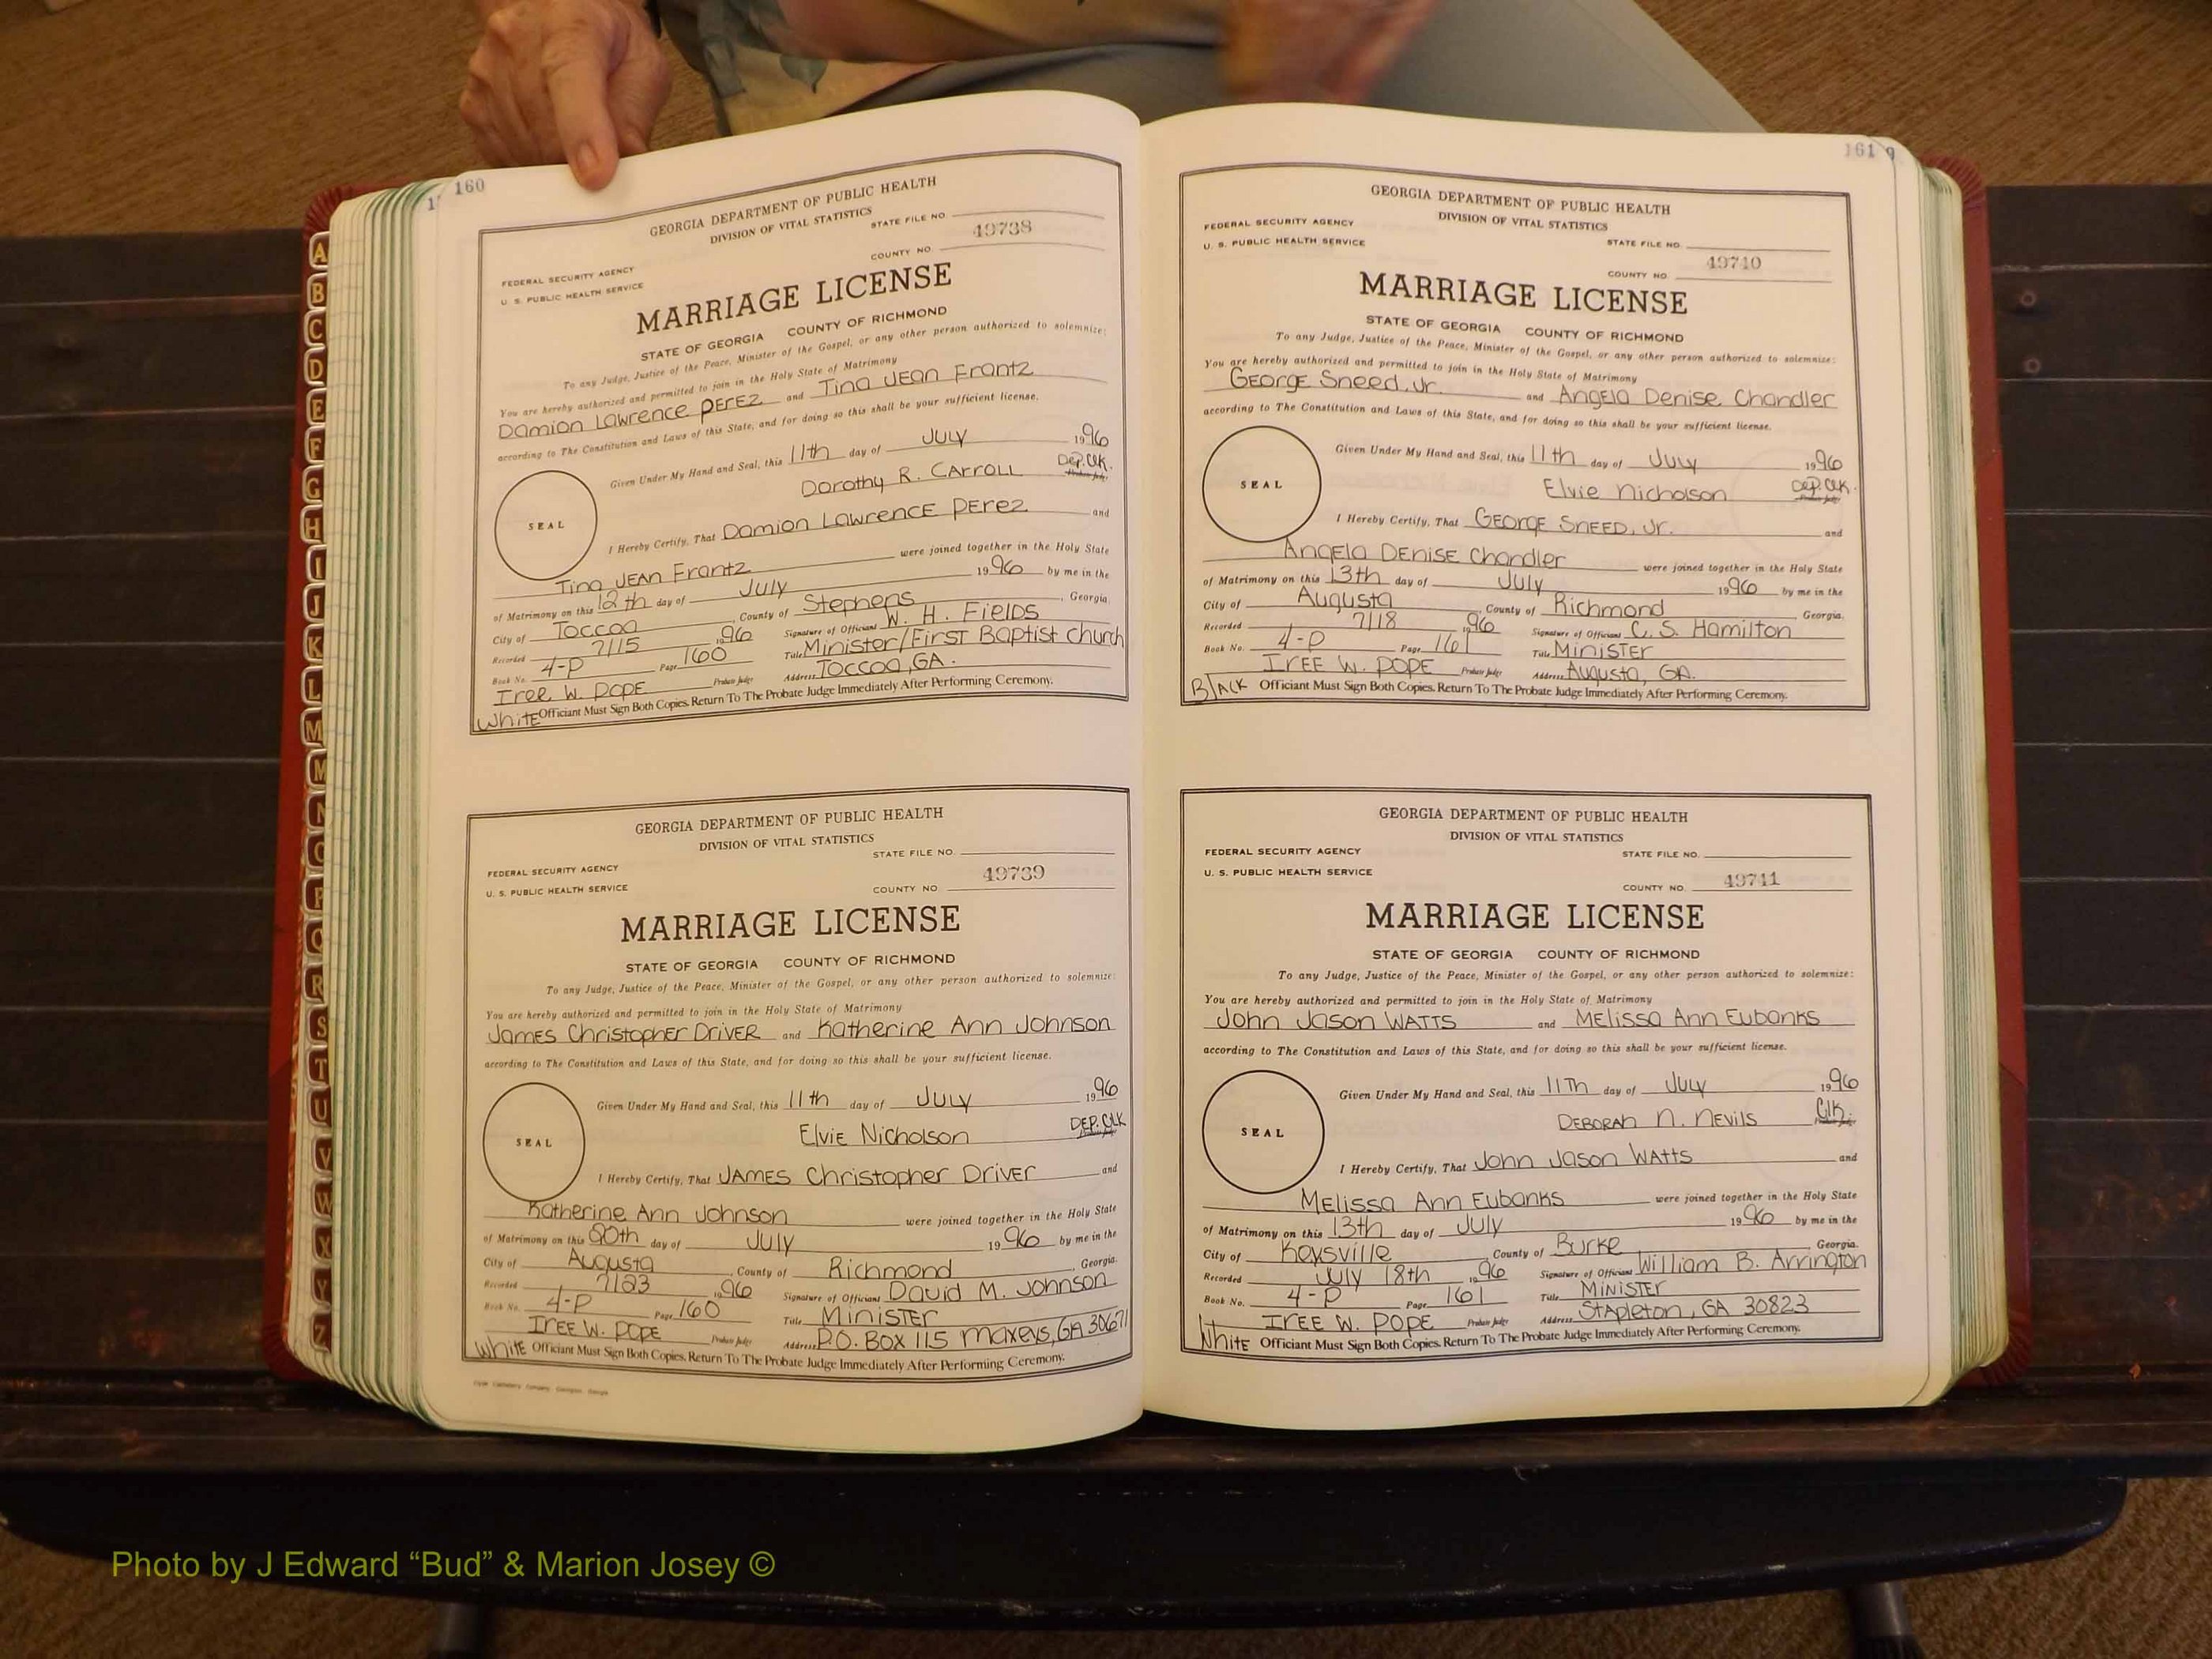 160
GEORGIA DEPARTMENT OF PUBLIC HEALTH
DIVISION OF VITAL STATISTICS
STATE FILE NO.
FEDERAL SECURITY AGENCY
U. S. PUBLIC HEALTH SERVICE
COUNTY NO. 49738
MARRIAGE LICENSE
STATE OF GEORGIA COUNTY OF RICHMOND
To any Judge, Justice of the Peace, Minister of the Gospel, or any other person authorized to solemnize:
You are hereby authorized and permitted to join in the Holy State of Matrimony
Damion Lawrence PEREZ and Tina JEAN Frantz
according to The Constitution and Laws of this State, and for doing so this shall be your sufficient license.
Given Under My Hand and Seal, this 11th day of JULY 1996
Dorothy R. CARROLL Dep. Clk.
SEAL
I Hereby Certify, That Damion LAWRENCE PEREZ and
Tina JEAN Frantz were joined together in the Holy State
of Matrimony on this 12th day of July 1996 by me in the
City of Toccoa, County of Stephens, Georgia.
Recorded 7/15 1996 Signature of Officiant W. H. FIELDS
Book No. 4-P Page 160 Title Minister/First Baptist church
Iree W. POPE Probate Judge Address Toccoa, GA.
White Officiant Must Sign Both Copies. Return To The Probate Judge Immediately After Performing Ceremony.
GEORGIA DEPARTMENT OF PUBLIC HEALTH
DIVISION OF VITAL STATISTICS
STATE FILE NO.
FEDERAL SECURITY AGENCY
U. S. PUBLIC HEALTH SERVICE
COUNTY NO 49739
MARRIAGE LICENSE
STATE OF GEORGIA COUNTY OF RICHMOND
To any Judge, Justice of the Peace, Minister of the Gospel, or any other person authorized to solemnize:
You are hereby authorized and permitted to join in the Holy State of Matrimony
James Christopher DRIVER and Katherine Ann Johnson
according to The Constitution and Laws of this State, and for doing so this shall be your sufficient license.
Given Under My Hand and Seal, this 11th day of JULY 1996
Elvie Nicholson DEP. CLK
SEAL
I Hereby Certify, That JAMES Christopher Driver and
Katherine Ann Johnson were joined together in the Holy State
of Matrimony on this 20th day of JULY 1996 by me in the
City of Augusta, County of Richmond, Georgia.
Recorded 7/23 1996 Signature of Officiant David M. Johnson
Book No. 4-P Page 160 Title MINISTER
IREE W. POPE Probate Judge Address P.O. BOX 115 Maxeys, GA 30671
White Officiant Must Sign Both Copies. Return To The Probate Judge Immediately After Performing Ceremony.
161
GEORGIA DEPARTMENT OF PUBLIC HEALTH
DIVISION OF VITAL STATISTICS
FEDERAL SECURITY AGENCY
U. S. PUBLIC HEALTH SERVICE
STATE FILE NO.
COUNTY NO. 49740
MARRIAGE LICENSE
STATE OF GEORGIA COUNTY OF RICHMOND
To any Judge, Justice of the Peace, Minister of the Gospel, or any other person authorized to solemnize:
You are hereby authorized and permitted to join in the Holy State of Matrimony
George Sneed, Jr. and Angela Denise Chandler
according to The Constitution and Laws of this State, and for doing so this shall be your sufficient license.
Given Under My Hand and Seal, this 11th day of July 1996
Elvie Nicholson Dep. Clk.
SEAL
I Hereby Certify, That GEORGE SNEED, Jr. and
Angela DENISE Chandler were joined together in the Holy State
of Matrimony on this 13th day of July 1996 by me in the
City of Augusta, County of Richmond Georgia.
Recorded 7/18 1996 Signature of Officiant C. S. Hamilton
Book No. 4-P Page 161 Title MINISTER
IREE W. POPE Probate Judge Address Augusta, GA.
BlACK Officiant Must Sign Both Copies. Return To The Probate Judge Immediately After Performing Ceremony.
GEORGIA DEPARTMENT OF PUBLIC HEALTH
DIVISION OF VITAL STATISTICS
FEDERAL SECURITY AGENCY
STATE FILE NO.
U. S. PUBLIC HEALTH SERVICE
COUNTY NO. 49741
MARRIAGE LICENSE
STATE OF GEORGIA COUNTY OF RICHMOND
To any Judge, Justice of the Peace, Minister of the Gospel, or any other person authorized to solemnize:
You are hereby authorized and permitted to join in the Holy State of Matrimony
John Jason WATTS and Melissa Ann Eubanks
according to The Constitution and Laws of this State, and for doing so this shall be your sufficient license.
Given Under My Hand and Seal, this 11Th day of July 1996
DEBORAH N. NEVILS Clk.
SEAL
I Hereby Certify, That John Jason WAtts and
Melissa Ann Eubanks were joined together in the Holy State
of Matrimony on this 13th day of July 1996 by me in the
City of Keysville, County of Burke Georgia.
Recorded July 18th 1996 Signature of Officiant William B. Arrington
Book No. 4-P Page 161 Title MINISTER
IREE W. POPE Probate Judge Address StApleton, GA 30823
White Officiant Must Sign Both Copies. Return To The Probate Judge Immediately After Performing Ceremony.
A
B
C
D
E
F
G
H
I
J
K
L
M
M
N
O
P
Q
R
S
T
U
V
W
X
Y
Z
Photo by J Edward “Bud” & Marion Josey ©